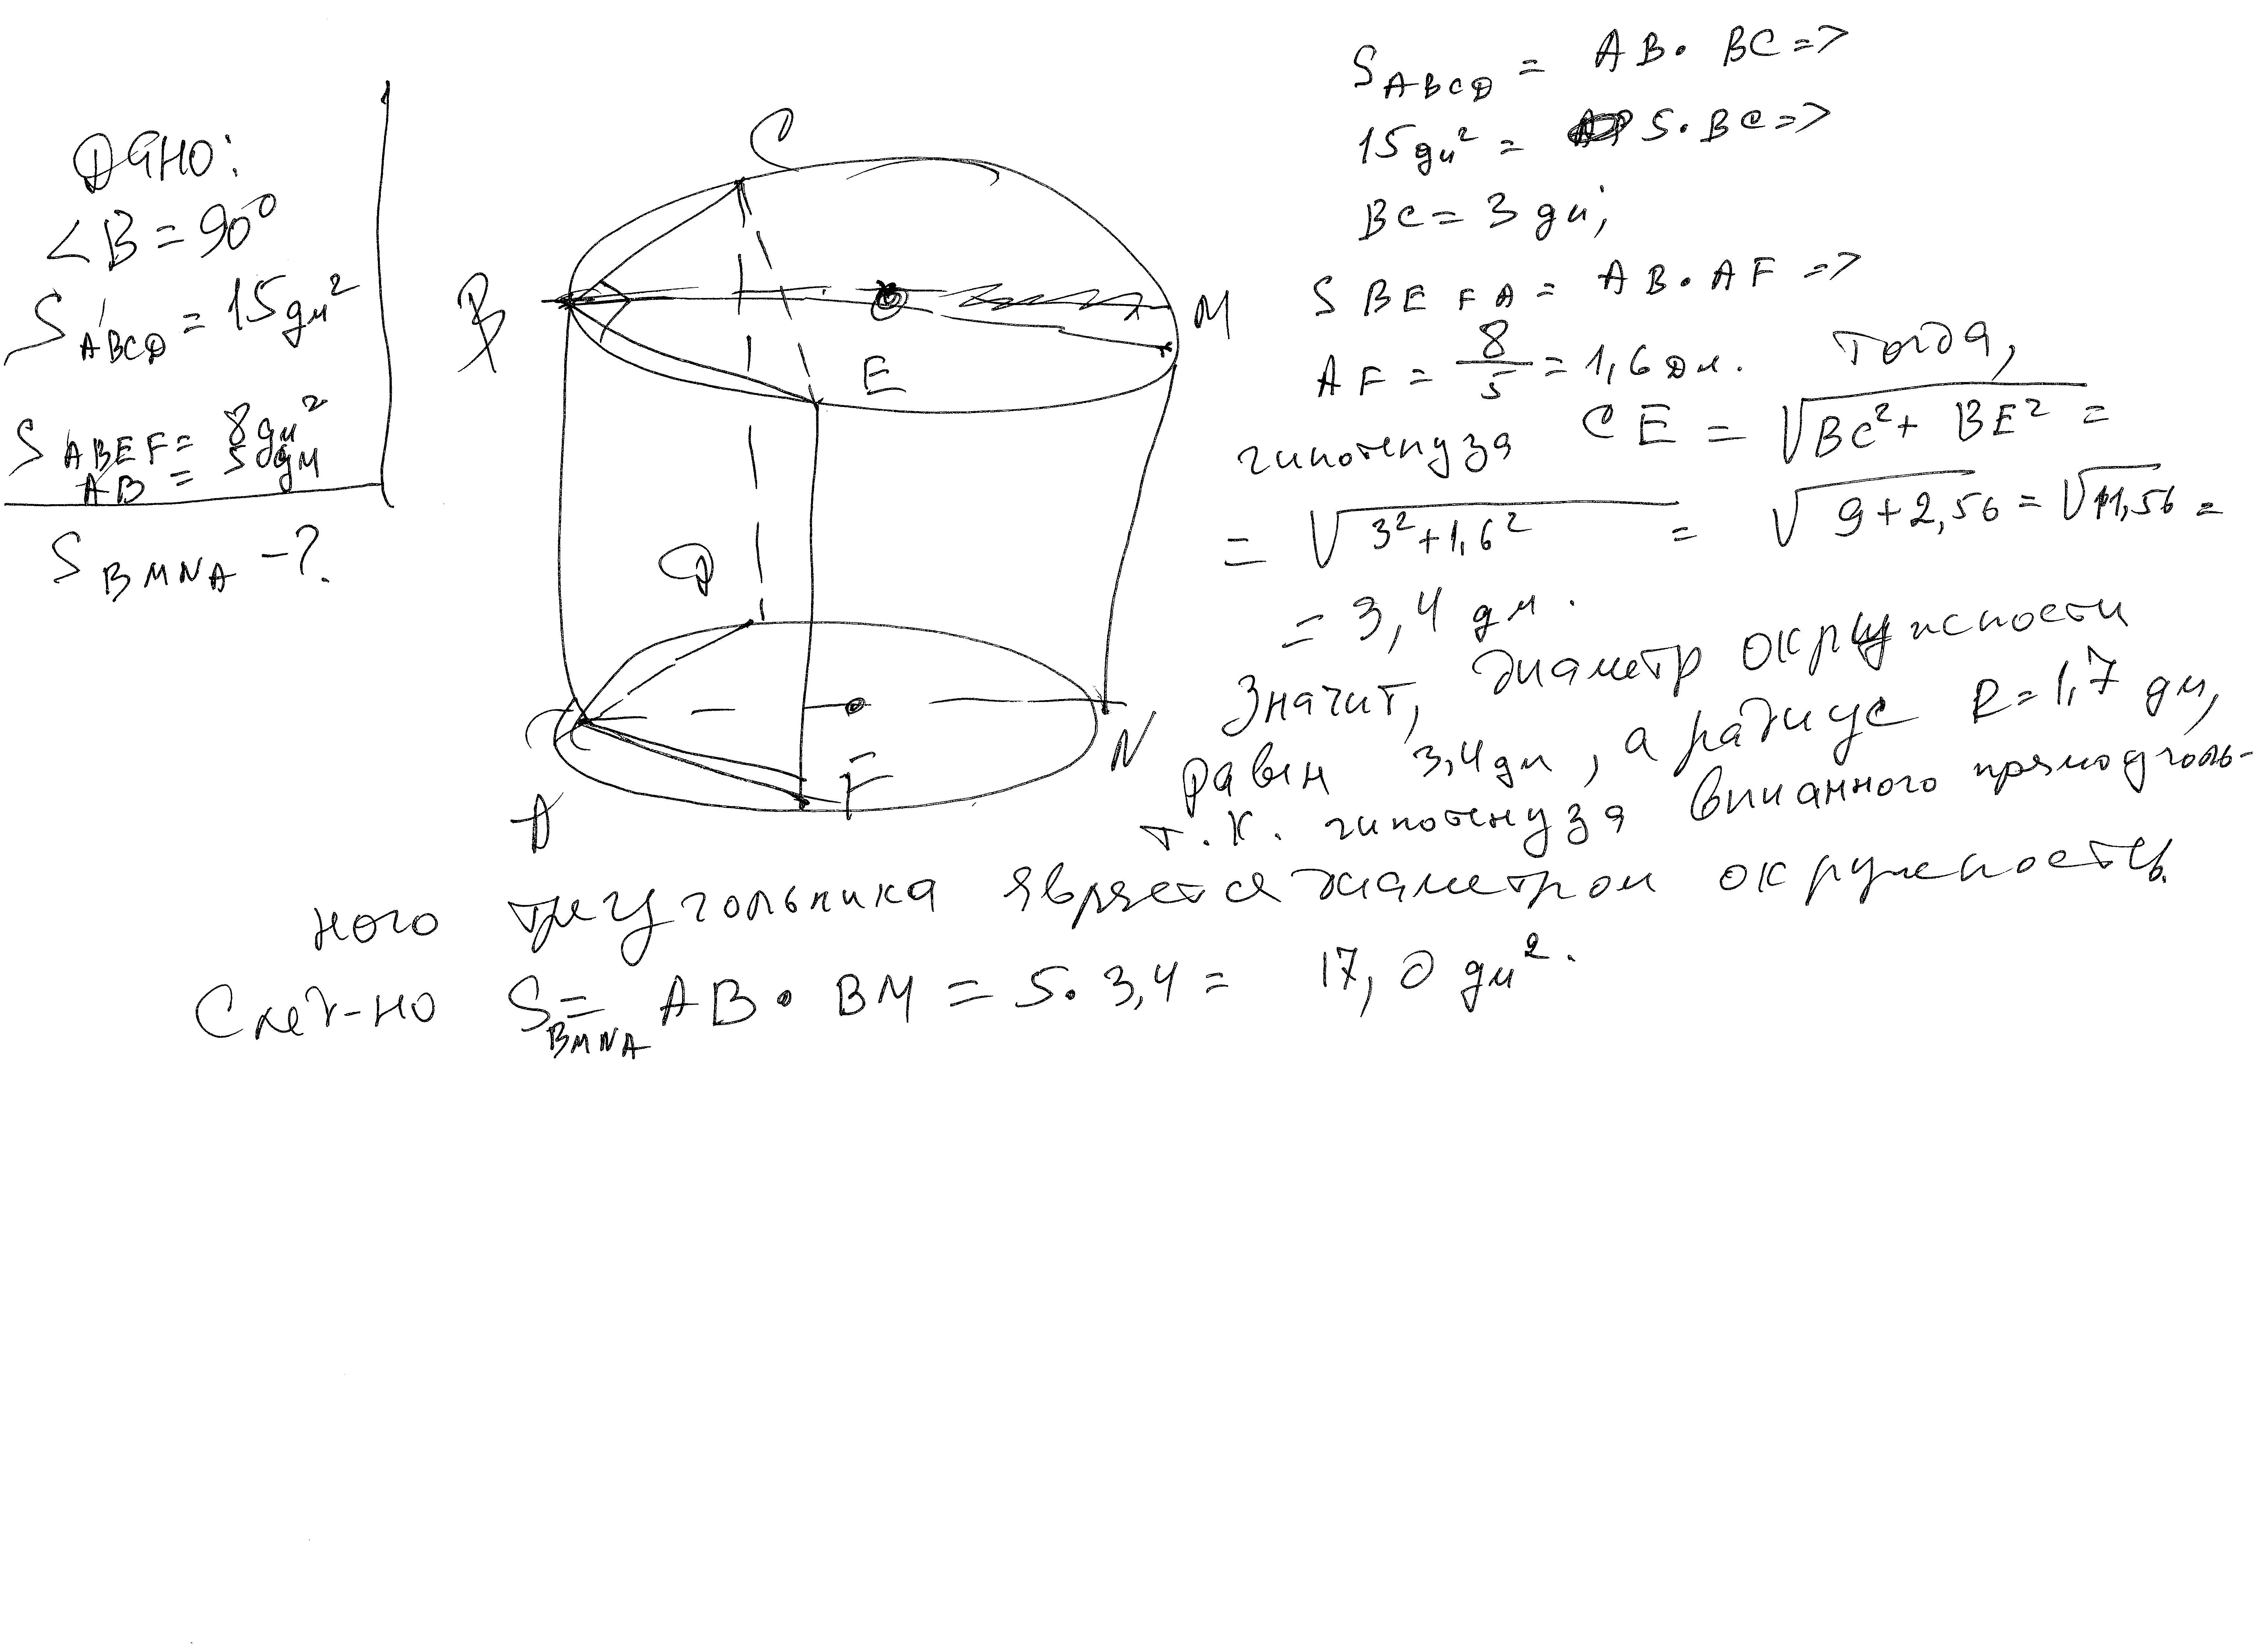 Дано:
∠B = 90°
S ABCD = 15 дм²
S ABEF = 8 дм²
AB = 5 дм
S BMNA - ?
C
B
M
E
D
A
F
N
S ABCD = AB · BC =>
15 дм² = 5 · BC =>
BC = 3 дм;
S BEFA = AB · AF =>
AF = 8/5 = 1,6 дм. Тогда,
гипотенуза CE = √(BC² + BE²) =
= √(3² + 1,6²) = √(9 + 2,56) = √11,56 =
= 3,4 дм.
Значит, диаметр окружности
равен 3,4 дм, а радиус R = 1,7 дм,
т.к. гипотенуза вписанного прямоуголь-
ного треугольника является диаметром окружности.
След-но S BMNA = AB · BM = 5 · 3,4 = 17,0 дм².